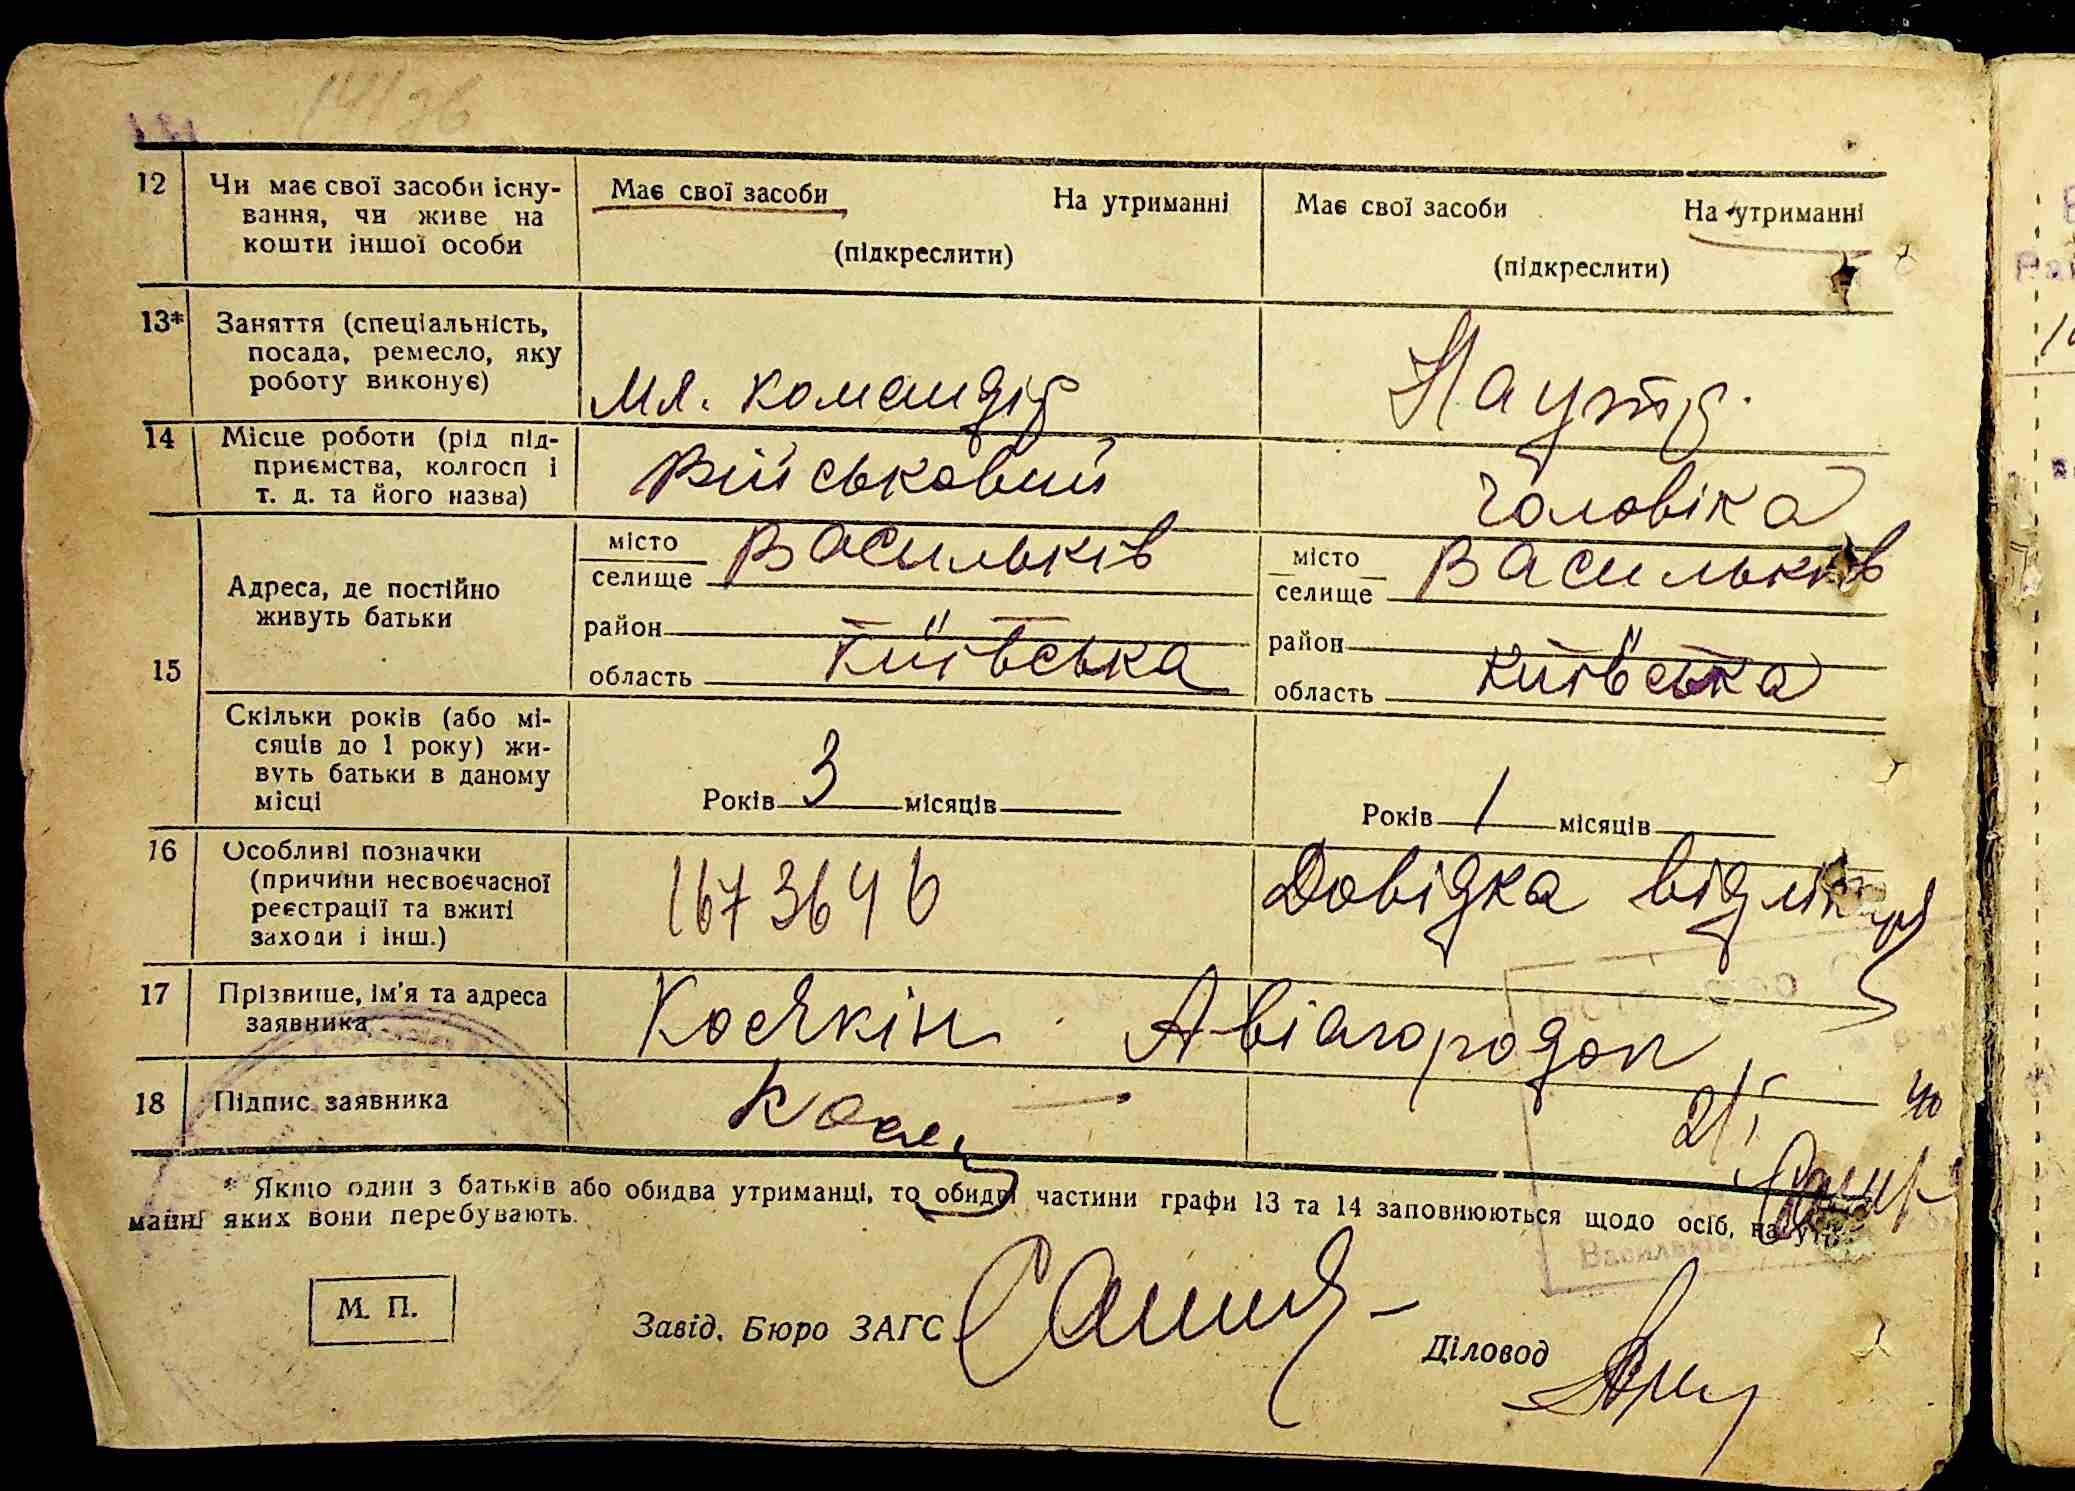 14/36
12 Чи має свої засоби існу-
вання, чи живе на
кошти іншої особи
Має свої засоби На утриманні
(підкреслити)
Має свої засоби На утриманні
(підкреслити)
13* Заняття (спеціальність,
посада, ремесло, яку
роботу виконує)
Мл. командір
На утр.
14 Місце роботи (рід під-
приємства, колгосп і
т. д. та його назва)
Військовий
чоловіка
15 Адреса, де постійно
живуть батьки
місто
селище Васильків
район
область Київська
місто
селище Васильків
район
область Київська
Скільки років (або мі-
сяців до 1 року) жи-
вуть батьки в даному
місці
Років 3 місяців
Років 1 місяців
16 Особливі позначки
(причини несвоєчасної
реєстрації та вжиті
заходи і інш.)
1673646
Довідка від лікаря
17 Прізвище, ім'я та адреса
заявника
Косякін Авіагородок
18 Підпис заявника
21/I 40
* Якщо один з батьків або обидва утриманці, то обидві частини графи 13 та 14 заповнюються щодо осіб, на утри-
манні яких вони перебувають.
М. П.
Завід. Бюро ЗАГС
Діловод